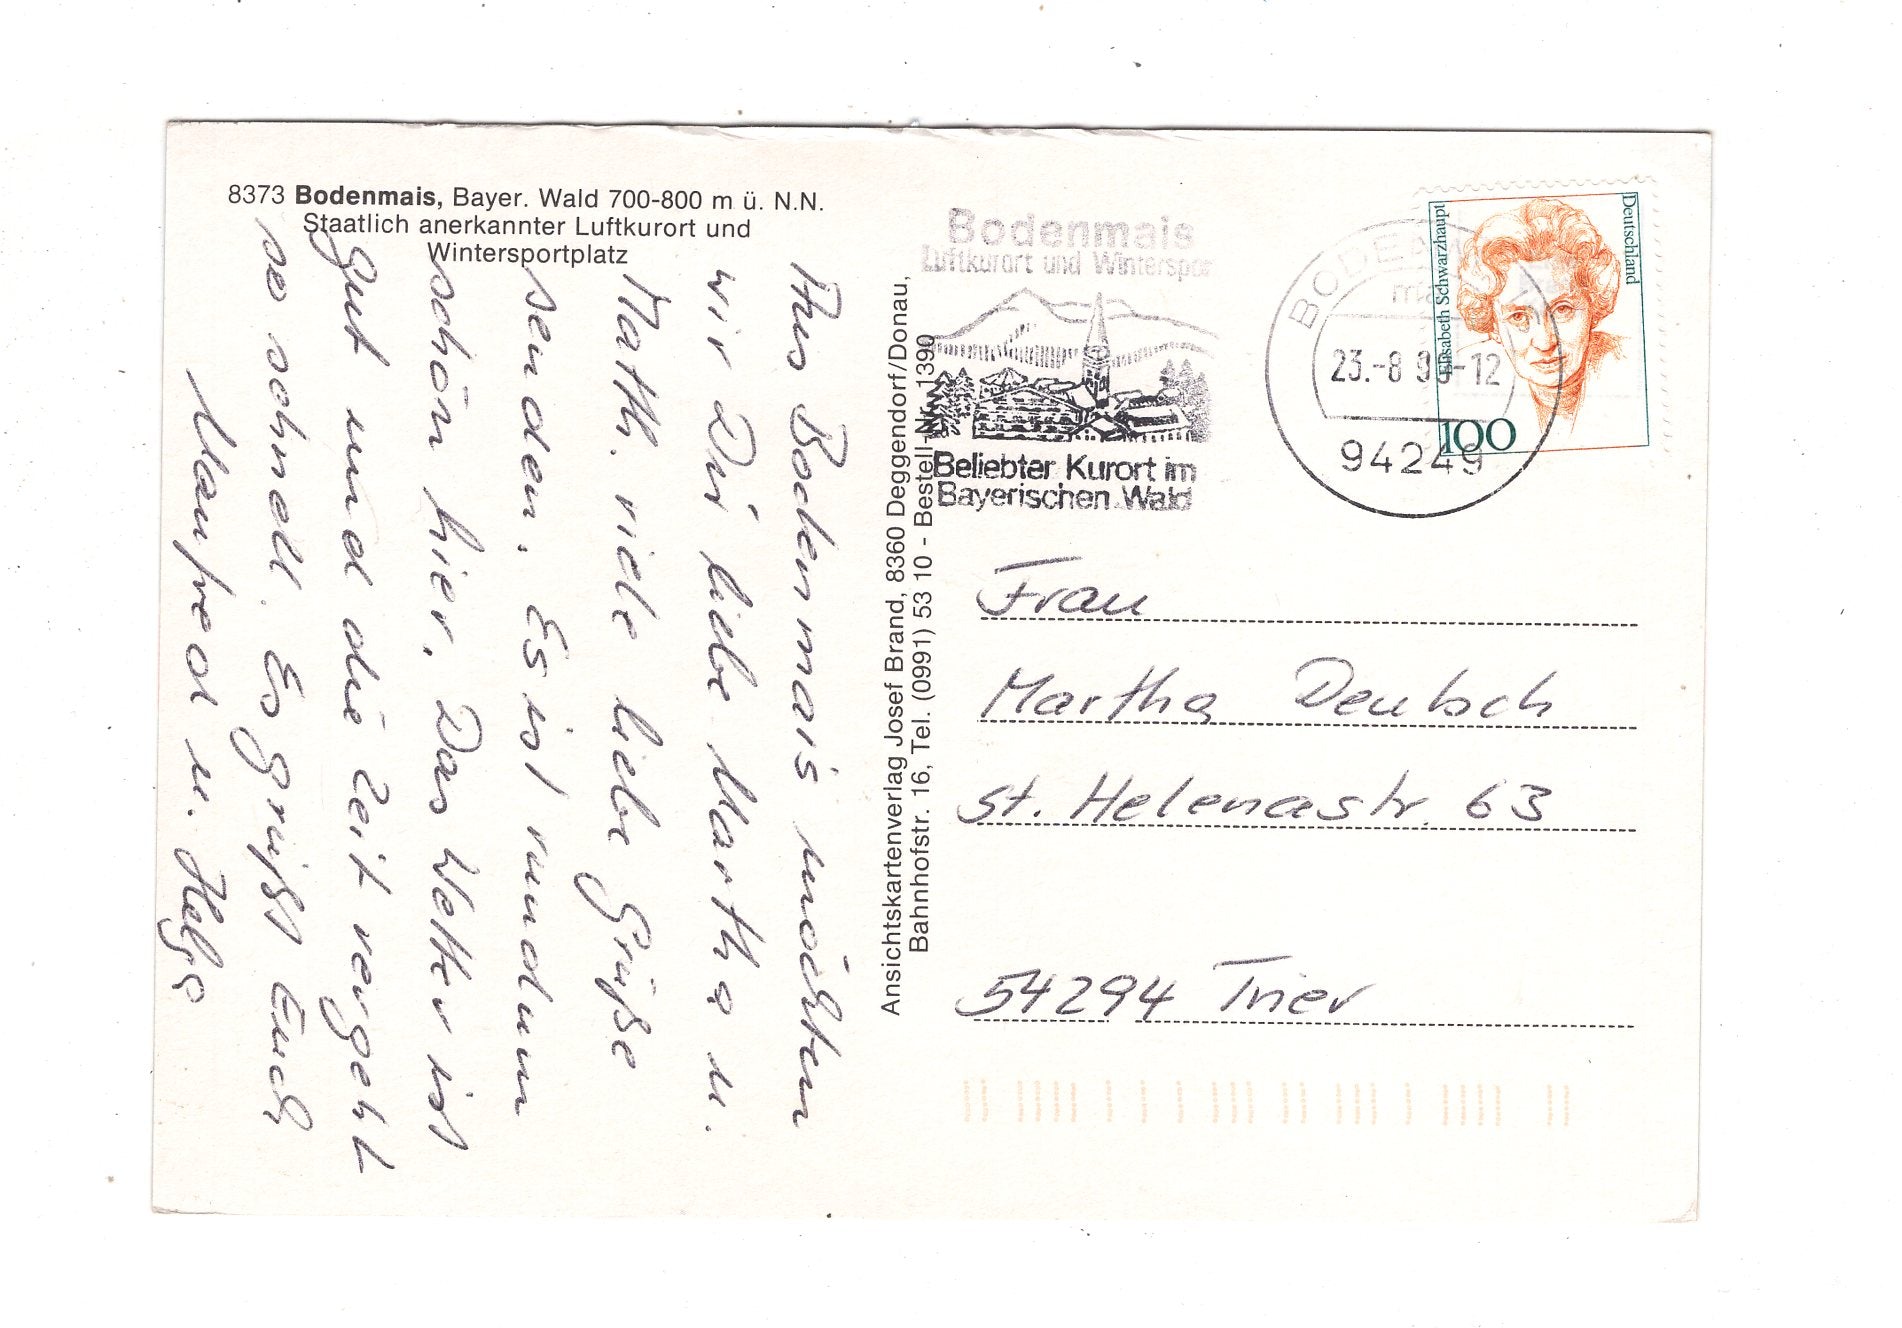 8373 Bodenmais, Bayer. Wald 700-800 m ü. N.N.
Staatlich anerkannter Luftkurort und
Wintersportplatz
Aus Bodenmais möchten
wir Dir liebe Martha u.
Math. viele liebe Grüße
senden. Es ist rundum
schön hier. Das Wetter ist
gut und die Zeit vergeht
so schnell. Es grüßt Euch
Manfred u. Helga
Ansichtskartenverlag Josef Brand, 8360 Deggendorf/Donau,
Bahnhofstr. 16, Tel. (0991) 53 10 - Bestell-Nr. 1399
Bodenmais
Luftkurort und Winterspor
Beliebter Kurort im
Bayerischen Wald
BODENM
ma
23.-8 9 -12
94249
Deutschland
Elisabeth Schwarzhaupt
100
Frau
Martha Deutsch
St. Helenastr. 63
54294 Trier